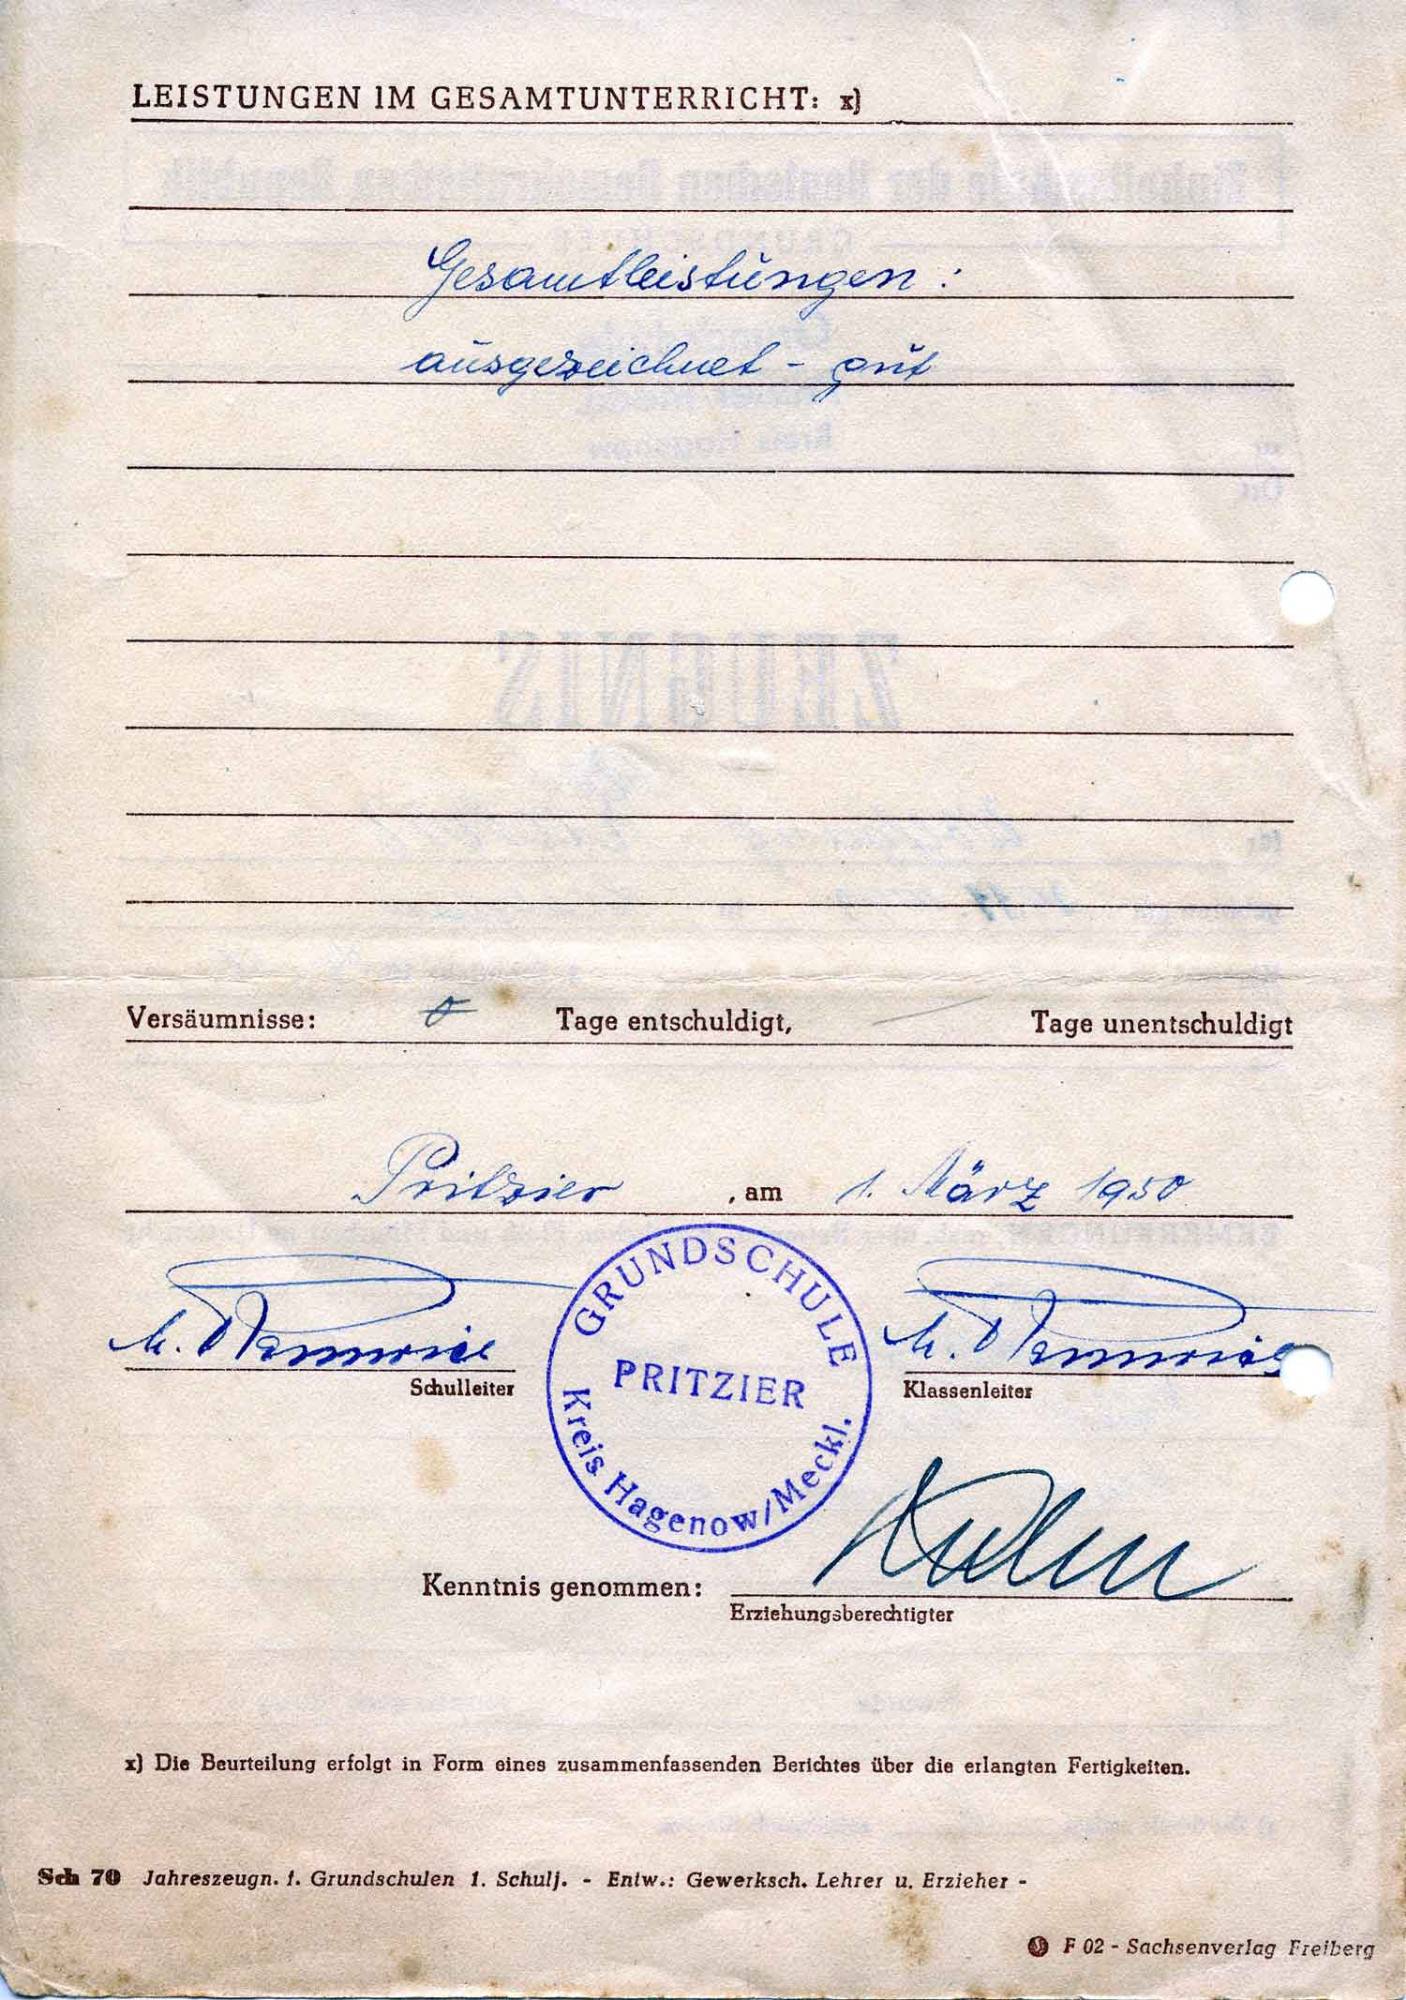 LEISTUNGEN IM GESAMTUNTERRICHT: x)
Gesamtleistungen:
ausgezeichnet - gut
Versäumnisse: 0 Tage entschuldigt, — Tage unentschuldigt
Pritzier, am 1. März 1950
GRUNDSCHULE
PRITZIER
Kreis Hagenow/Meckl.
Schulleiter
Klassenleiter
Kenntnis genommen:
Erziehungsberechtigter
x) Die Beurteilung erfolgt in Form eines zusammenfassenden Berichtes über die erlangten Fertigkeiten.
Sch 70 Jahreszeugn. f. Grundschulen 1. Schulj. - Entw.: Gewerksch. Lehrer u. Erzieher -
F 02 - Sachsenverlag Freiberg